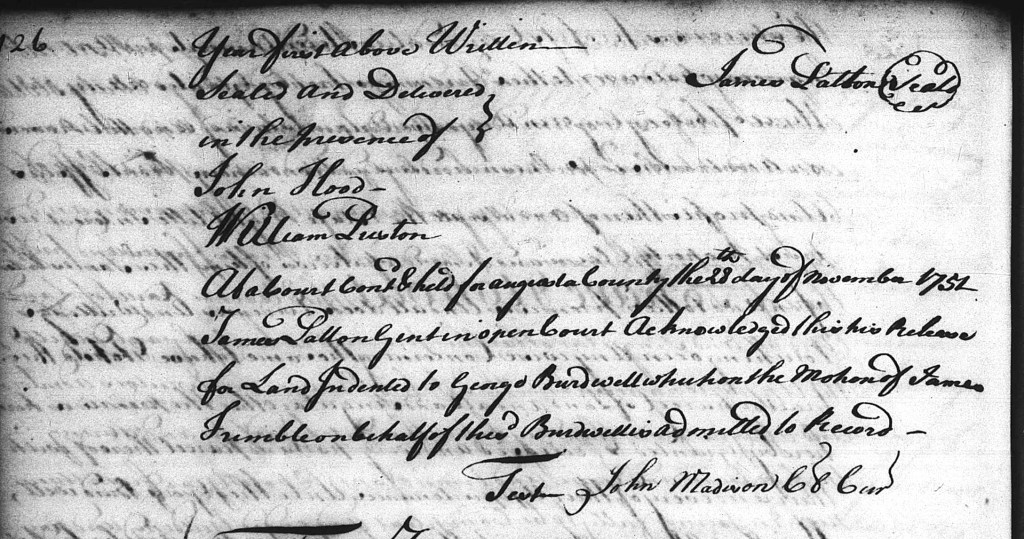 126
Year first above Written
James Patton Seal
Sealed and Delivered
in the presence of
John Hood
William Preston
At a Court Contd & held for augusta County the 28th day of November 1751
James Patton Gent in open Court Acknowledged this his Release
for Land Indented to George Burdwell which on the Motion of James
Trimble on behalf of the sd Burdwell is admitted to Record
Teste John Madison